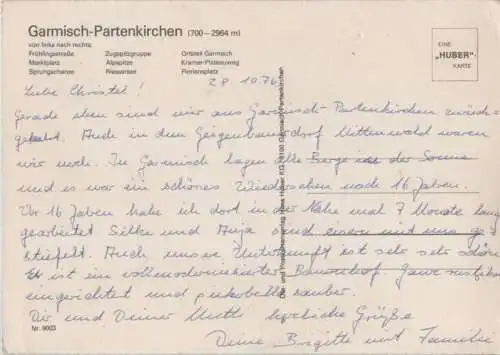 Garmisch-Partenkirchen (700–2964 m)
von links nach rechts
Frühlingstraße Zugspitzgruppe Ortsteil Garmisch
Marktplatz Alpspitze Kramer-Plateauweg
Sprungschanze Riessersee Partenstein
EINE
„HUBER"
KARTE
28.10.76
Liebe Christel!
Gerade eben sind wir aus Garmisch-Partenkirchen zurück-
gekehrt. Auch in dem Geigenbauerdorf Mittenwald waren
wir noch. In Garmisch lagen alle Berge in der Sonne
und es war ein schönes Wiedersehen nach 16 Jahren.
Vor 16 Jahren habe ich dort in der Nähe mal 7 Monate lang
gearbeitet Silke und Anja sind eisern mit uns ge-
stiefelt. Auch unsere Unterkunft ist sehr sehr schön
Es ist ein vollmodernisierter Bauernhof. Ganz rustikal
eingerichtet und pikobello sauber.
Dir und Deiner Mutti herzliche Grüße
Deine Brigitte mit Familie
Nr. 9003
Huber KG, 8100 Garmisch-Partenkirchen